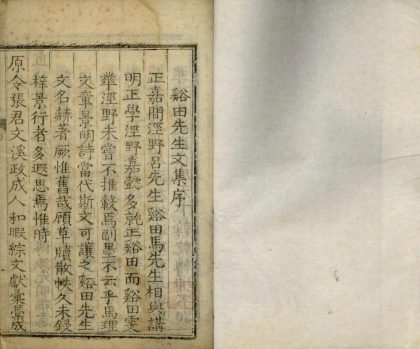 谿田先生文集序
正嘉間涇野呂先生谿田馬先生相與講
明正學涇野嘉懿多就正谿田而谿田雯
華涇野未嘗不推轂焉副墨不云乎馬理
文章景明詩當代斯文可讓之谿田先生
文名赫著厥惟舊哉顧草牘散帙久未鋟
梓景行者多遐思焉惟時
原令張君文溪政成人和暇綜文獻裒彙成